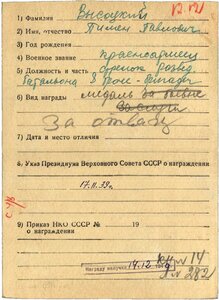 1) Фамилия Высоцкий
2) Имя, отчество Пимен Павлович
3) Год рождения
4) Военное звание красноармеец
5) Должность и часть стрелок развед.
батальона 3 танк. бригады
6) Вид награды медаль за боевые
заслуги
За отвагу
7) Дата и место отличия
8) Указ Президиума Верховного Совета СССР о награждении
17.11.39г.
9) Приказ НКО СССР № 19
о награждении
Награду получил 14.12
14
282